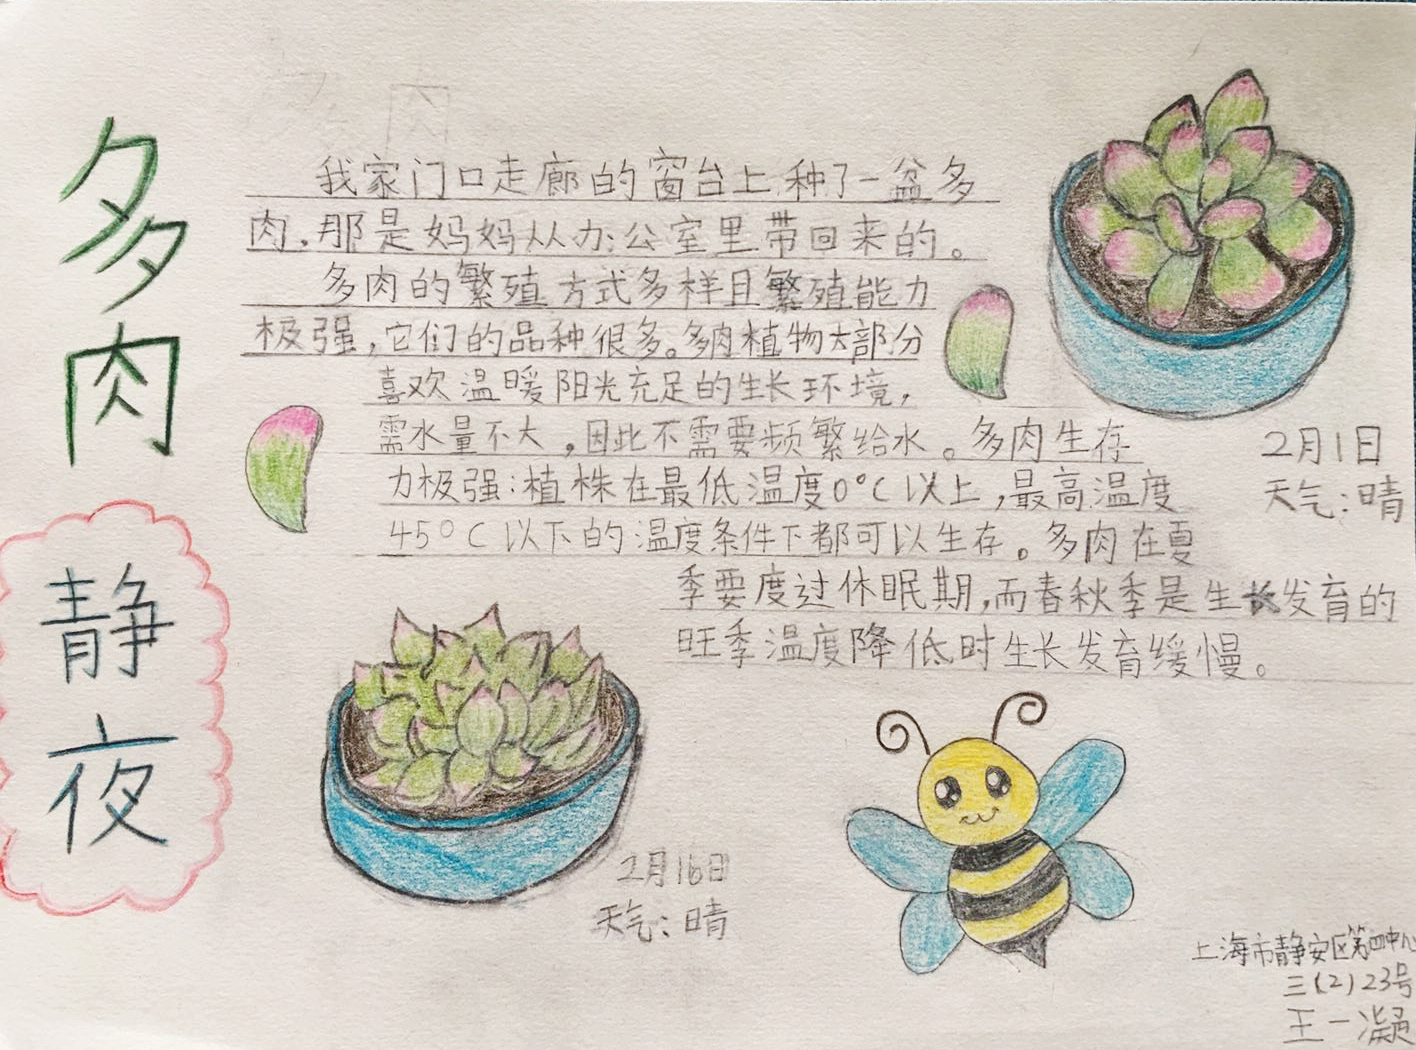 多肉
静夜
我家门口走廊的窗台上种了一盆多
肉，那是妈妈从办公室里带回来的。
多肉的繁殖方式多样且繁殖能力
极强，它们的品种很多。多肉植物大部分
喜欢温暖阳光充足的生长环境，
需水量不大，因此不需要频繁给水。多肉生存
力极强：植株在最低温度0°C以上，最高温度
45°C以下的温度条件下都可以生存。多肉在夏
季要度过休眠期，而春秋季是生长发育的
旺季温度降低时生长发育缓慢。
2月1日
天气：晴
2月16日
天气：晴
上海市静安区第四中心
三(2)23号
王一凝